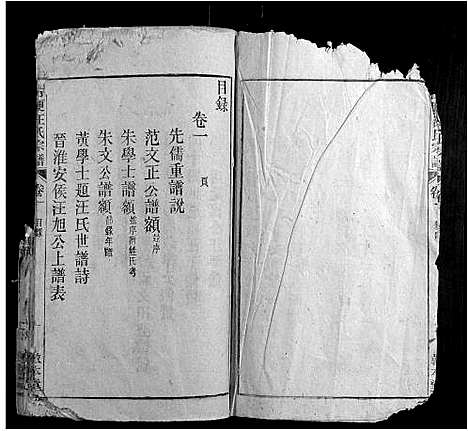 目錄
卷一 頁
先儒重譜說
范文正公譜額並序
朱學士譜額並序附姓氏考
朱文公譜額
黃學士題汪氏世譜詩
晉淮安侯汪旭公上譜表
汪氏宗譜 卷一 目錄